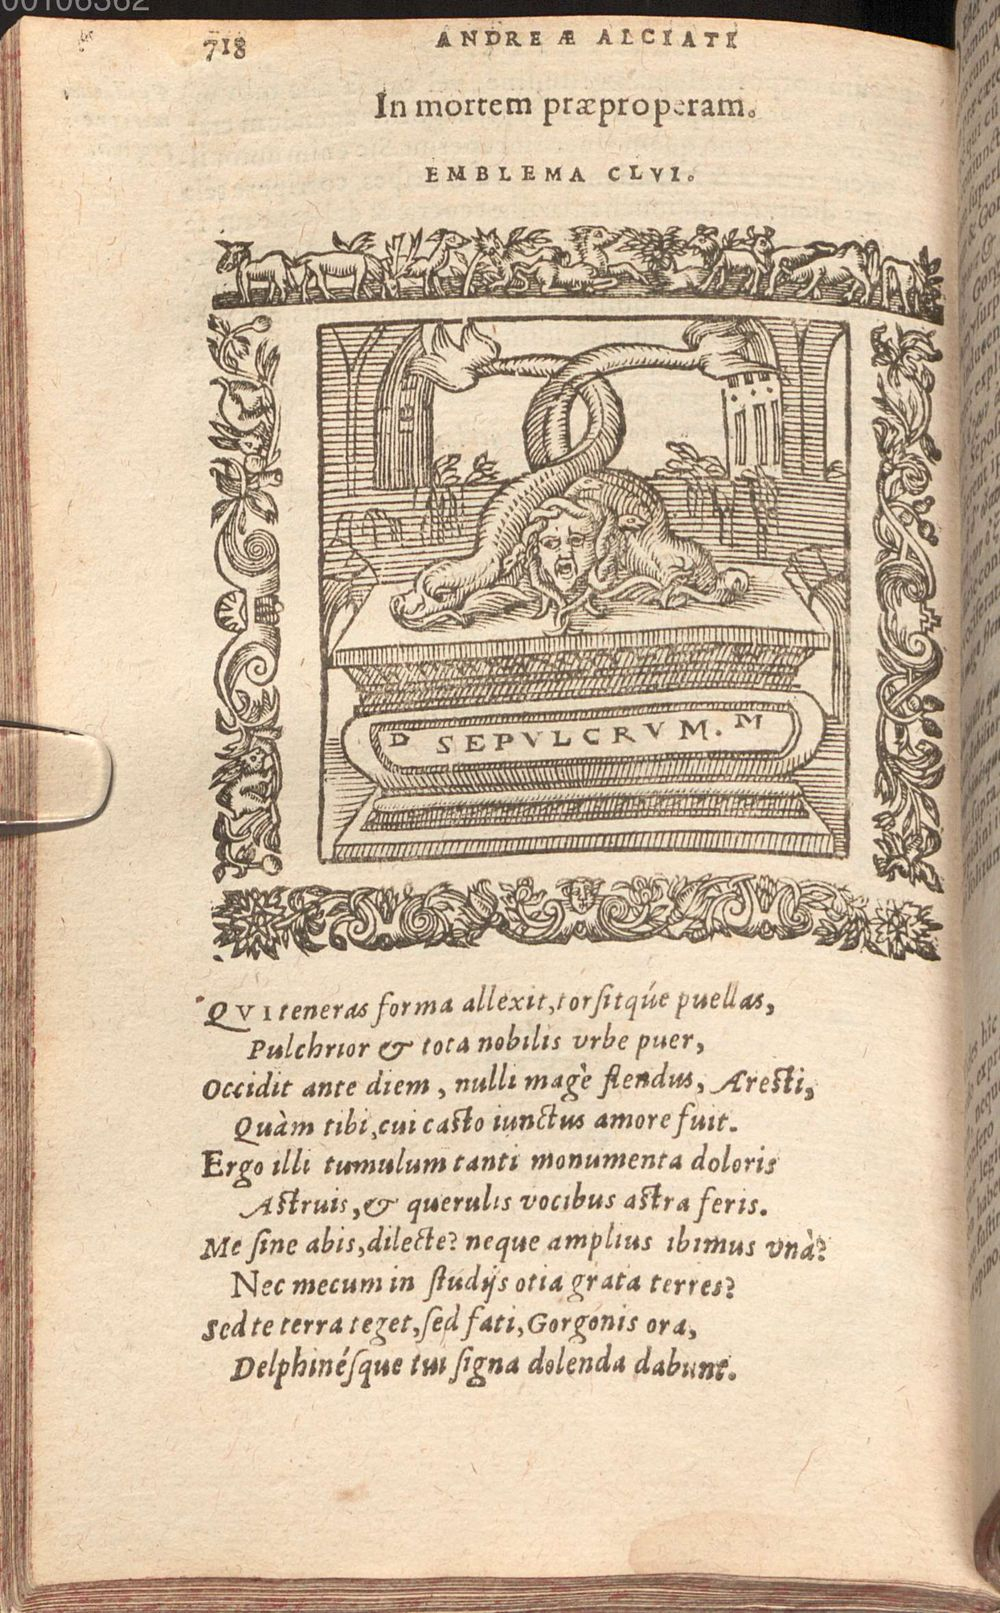 00106362
718 ANDREÆ ALCIATI
In mortem præproperam.
EMBLEMA CLVI.
D SEPVLCRVM. M
QVI teneras forma allexit, torſitqúe puellas,
Pulchrior & tota nobilis vrbe puer,
Occidit ante diem, nulli magè flendus, Areſti,
Quàm tibi, cui caſto iunctus amore fuit.
Ergo illi tumulum tanti monumenta doloris
Aſtruis, & querulis vocibus aſtra feris.
Me ſine abis, dilecte? neque amplius ibimus vnà?
Nec mecum in ſtudijs otia grata terres?
Sed te terra teget, ſed fati, Gorgonis ora,
Delphinéſque tui ſigna dolenda dabunt.